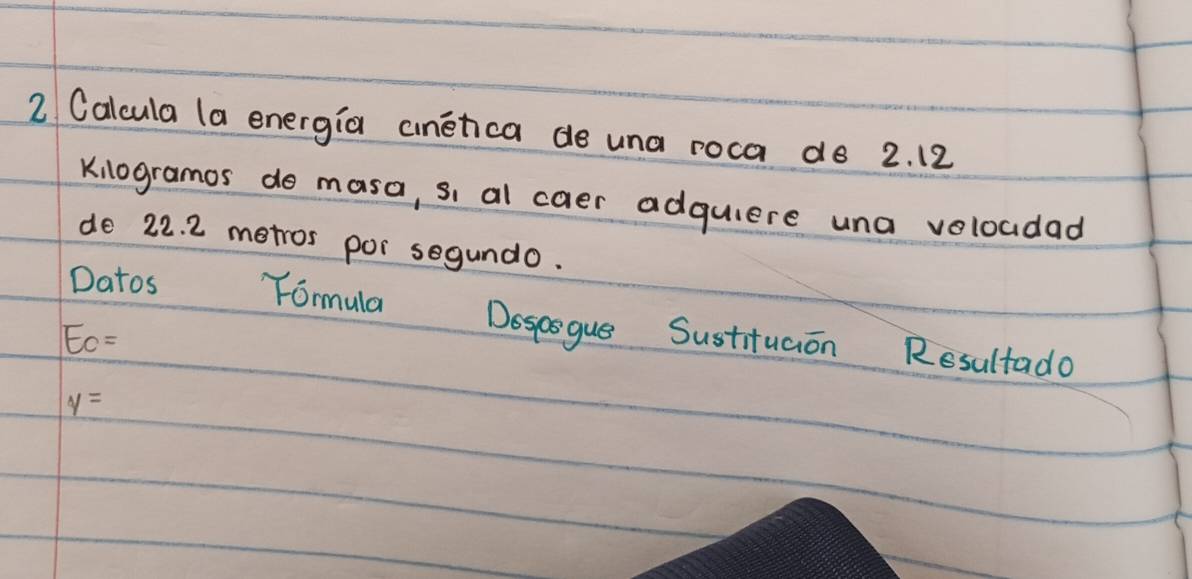 2 Calcula la energía cinética de una roca de 2.12
Kilogramos de masa, si al caer adquiere una velocidad
de 22.2 metros por segundo.
Datos Fórmula Despegue Sustitución Resultado
Ec=
v=